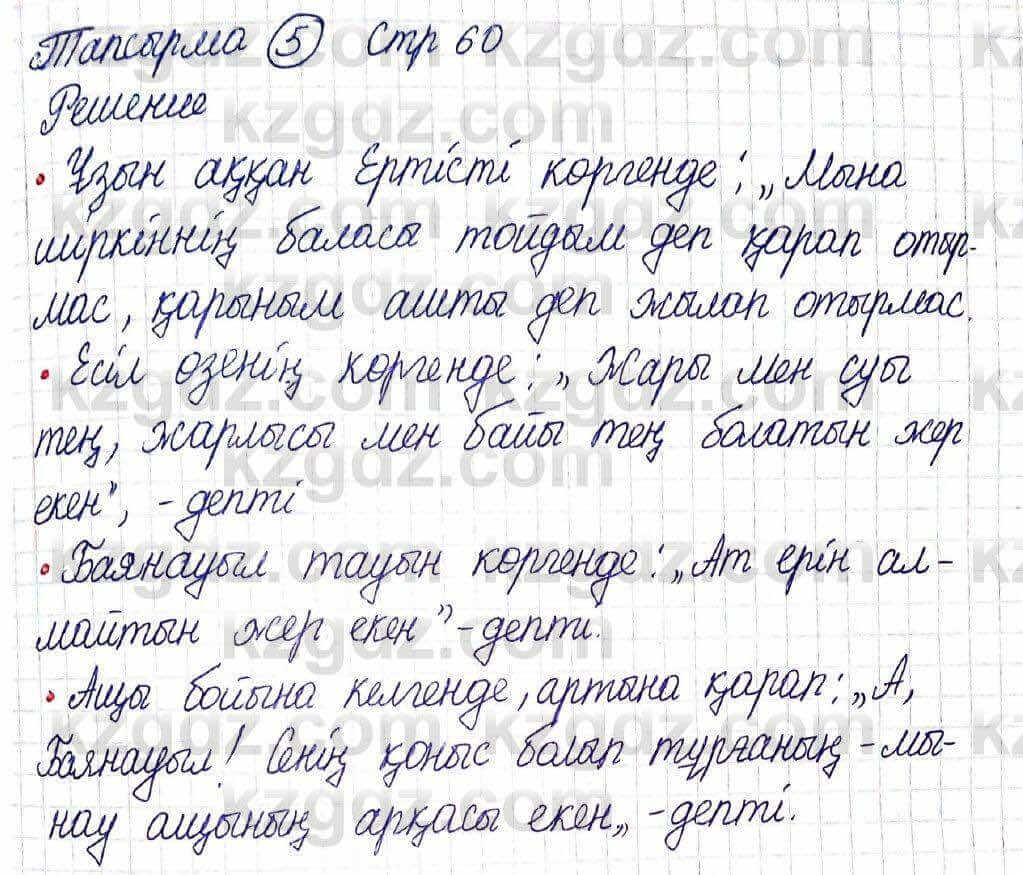 Тапсырма 5 Стр 60
Решение
• Ұзын аққан Ертісті көргенде: „Мына
шіркіннің баласы тойдым деп қарап отыр-
мас, қарыным ашты деп жылап отырмас.
• Есіл өзенің көргенде: „Жары мен суы
тең, жарлысы мен байы тең болатын жер
екен", -депті
• Баянауыл тауын көргенде: „Ат ерін ал-
майтын жер екен" -депті.
• Ащы бойына келгенде, артына қарап: „А,
Баянауыл! Сенің қоныс болып тұрғаның -мы-
нау ащының арқасы екен„ -депті.
kzgdz.com